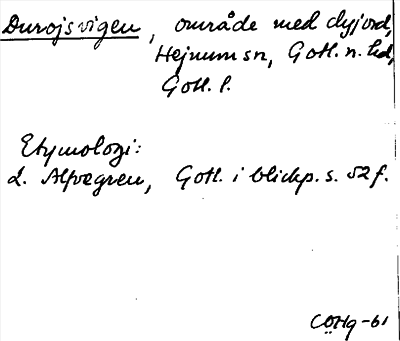 Durojsvigen, område med dyjord,
Hejnum sn, Gotl. n. hd,
Gotl. l.
Etymologi:
L. Alfvegren, Gotl. i blickp. s. 52 f.
CÖHg-61